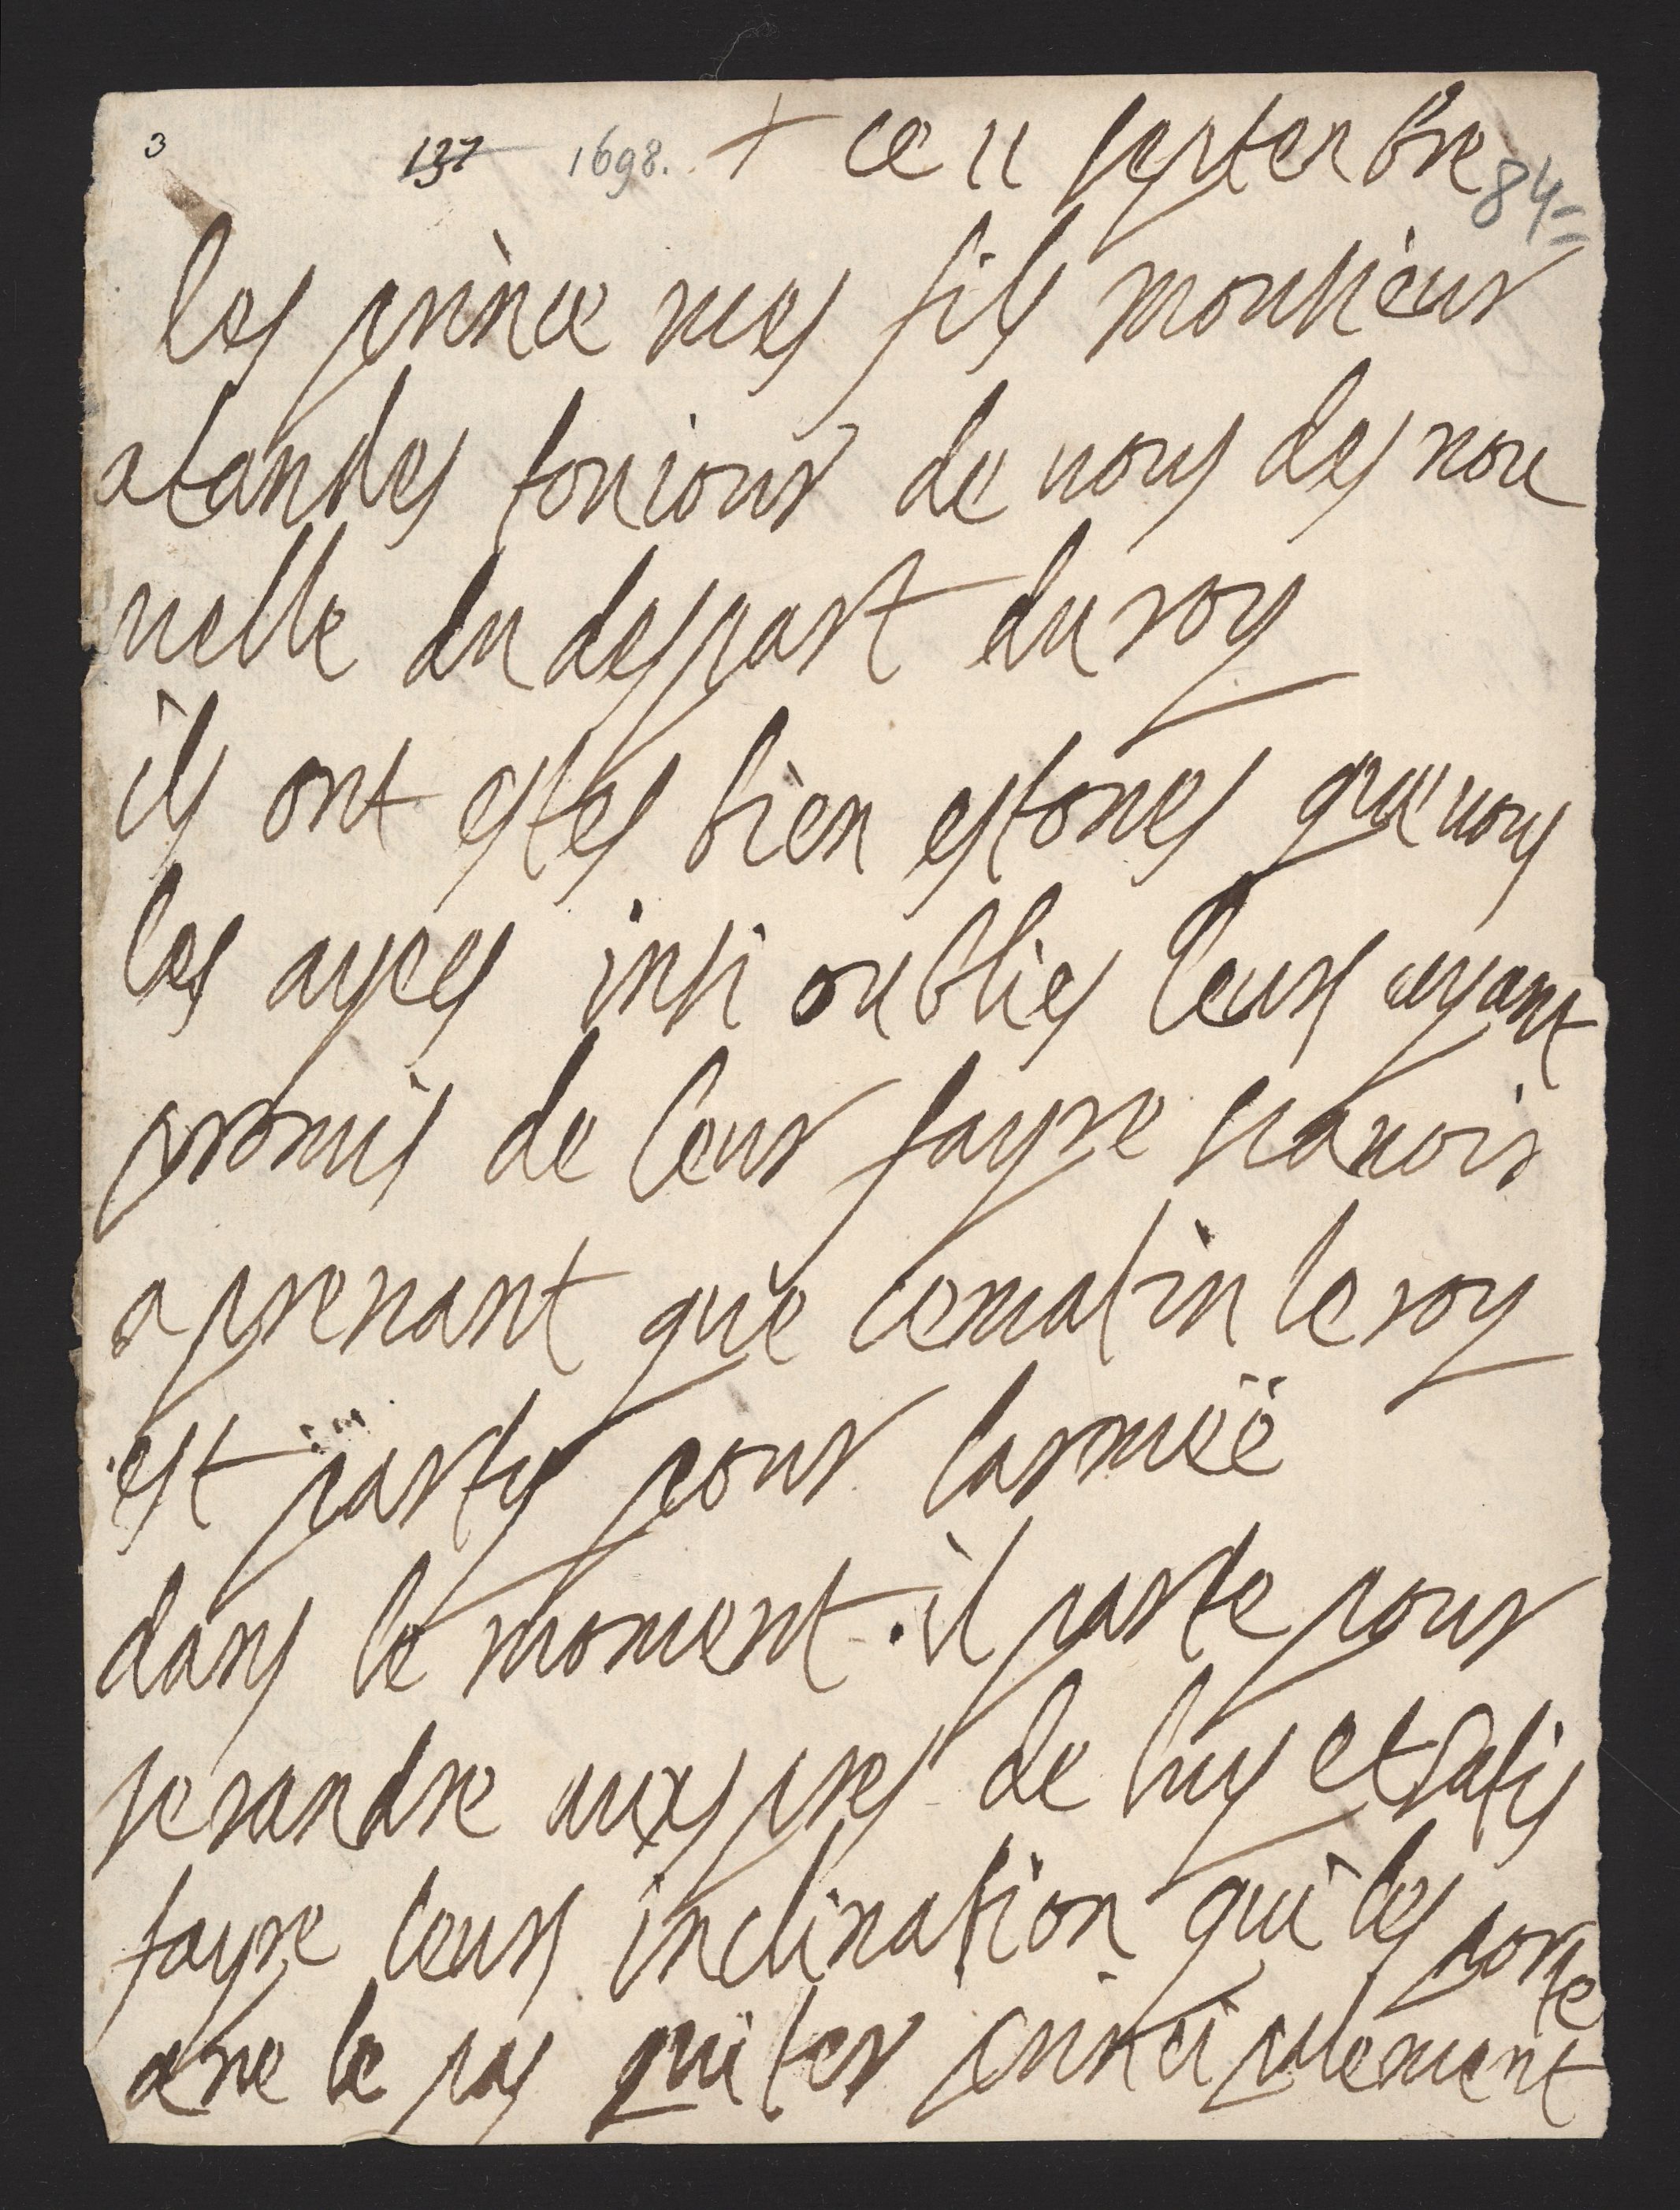 3 137 1698. + ce 11 septenbre 84
les prince mes fils monsieur
atandes toujour de vous des nou
velle du despart du roy
ils ont estes bien estones que vous
les ayees insi oublies leurs ayant
promis de leur fayre savoir
aprenant que cematin le roy
est party pour larmeë
dans le moment il parte pour
serandre auxspres de luy et satis
fayre leurs inclination qui les porte
a ne le pas quiter principalement